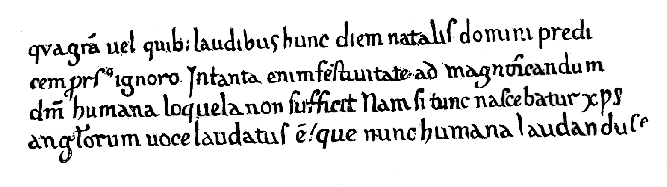 qvagrā uel quib; laudibus hunc diem natalis domini predi
cem prsꝰ ignoro. In tanta enim festiuitate ad magnificandum
dm̄ humana loquela non sufficit Nam si tunc nascebatur xps
anglorum uoce laudatus ē! que nunc humana laudan